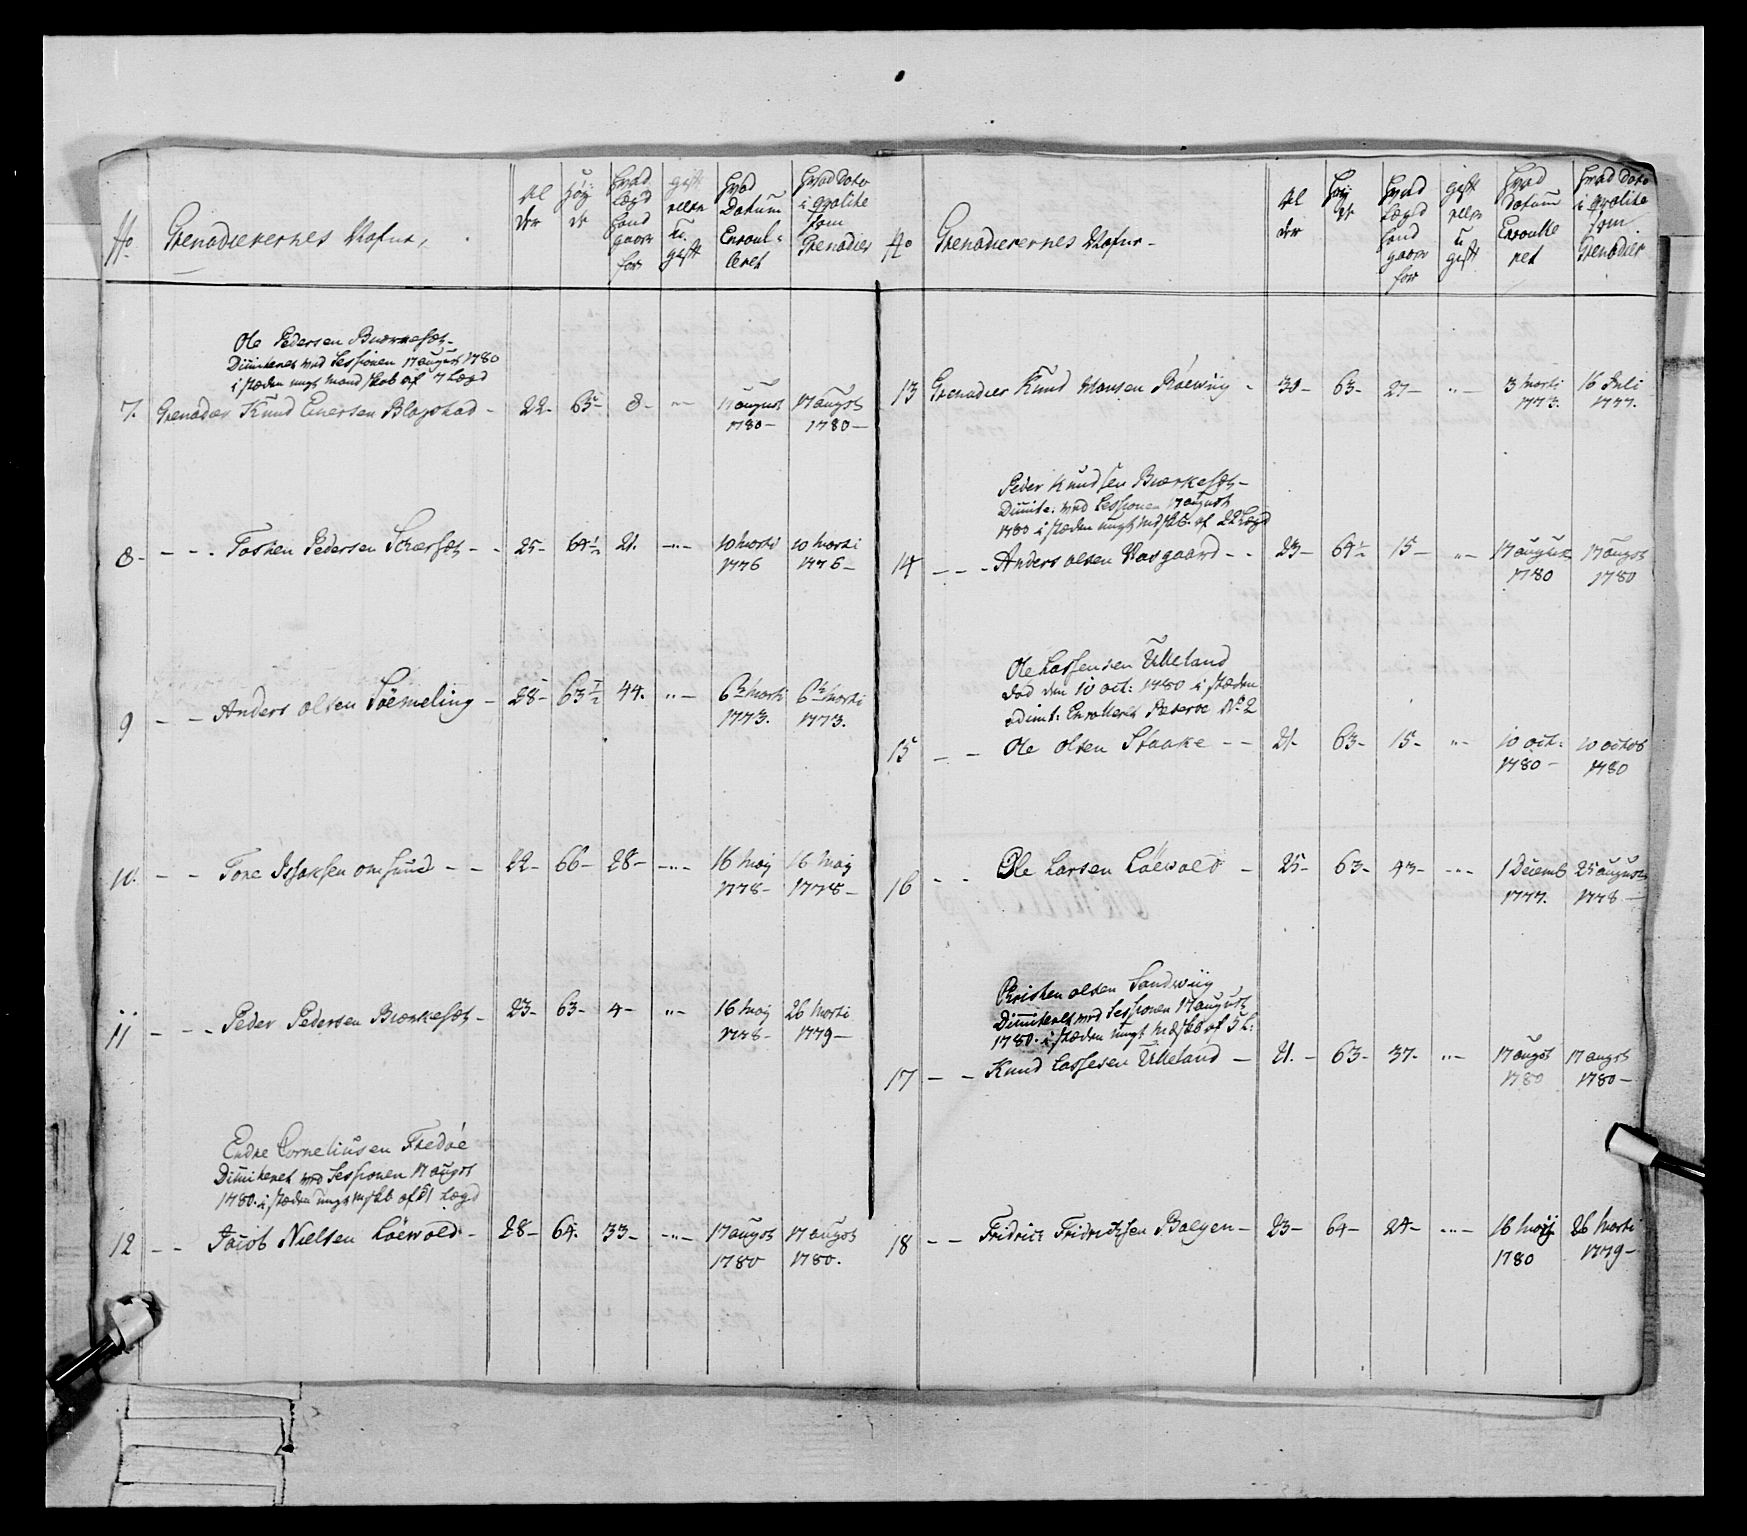 No Grenadierernes Nafne,
Al
der
Høy
de
hvad
Lægd
hand
gaaer
for
gift
eller
u
gift
hvad
Datum
Enroul-
leret
hvad Dato
i qvalite
som
Grenadier
Ole Pedersen Buerkesæt-
Dimiteret ved Sessionen 17 august 1780
i stæden ungt Mandskab af 7 Lægd
7. Grenadier Knud Einersen Blagstad - 22- 65- 8- "- 17 august 17 augst
1780- 1780-
8- - - - Tosten Pedersen Scharsæt - - 25- 64½ 21. -"- 10 Marti 10 Marti
1776 1776-
9 - - Anders Olsen Sømeling - 28- 63½ 44. "- 6te Marti 6te Marti
1773. 1773.
10. - - Tore Issaksen Omsund - - 22- 66- 28- -"- 16 Maij 16 Maij
1778- 1778-
11 - - - Peder Pedersen Biørkesæt - 23- 63- 4- "- 16 Maij 26 Marti
1778- 1779-
Endre Corneliussen Fredøe
Dimiteret ved Sessionen 17 augst
1780. i stæden ungt mskb af 51 Lægd
12 - - Jacob Nielsen Løevold - 28- 64- 33- -"- 17 augst 17 augst
1780 1780.
No Grenadierernes Nafne-
Al
der
Høy
de
hvad
Lægd
hand
gaaer
for
gift
eller
u
gift
hvad
datum
Enroulle
ret
hvad Dato
i qvalite
som
Grenadier
13 Grenadier Knud Hansen Bolewiig - 30- 63- 27- "- 3 Marti 16 Juli
1773. 1777.
Peder Knudsen Buerkesæt-
Dimite. ved Sessionen 17 august
1780 i stæden ungt mdskb. af 22 Lægd
14 - - - Anders Olsen Nasgaard - - 23- 64½ 15- "- 17 august 17 augst
1780 1780
Ole Lassensen Ukkeland
død den 10 oct: 1780 i stæden
Enrolleret Reserve No 2
15 - - Ole Olsen Staake - - 21- 63- 15- "- 10 oct: 10 octob
1780- 1780
16 - - Ole Larsen Løevold - 25- 63- 43- -"- 1 Decemb 25 august
1777. 1778-
Kristen Olsen Sandwiig
Dimiteret ved Sessionen 17 august
1780. i stæden ungt mdskb af 5 L:
17 - - Knud Lassesen Ukkeland - 21. - 63- 37- "- 17 augst 17 augst
1780 1780-
18 - - Fridrich Fridrichsen Bolgen - 23- 64- 24- -"- 16 Maij 26 Marti
1780 1779-